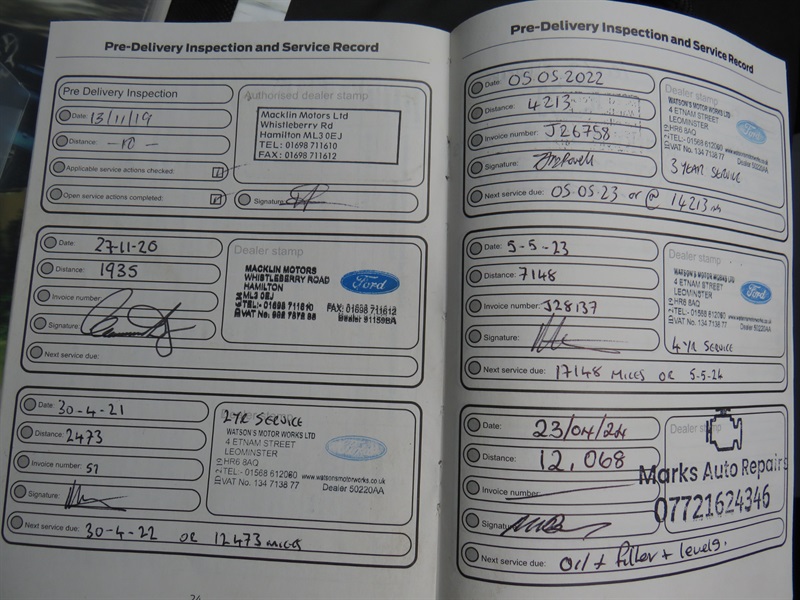 Pre-Delivery Inspection and Service Record
Pre Delivery Inspection
Date 13/11/19
Distance: -10-
Applicable service actions checked:
Open service actions completed:
Authorised dealer stamp
Macklin Motors Ltd
Whistleberry Rd
Hamilton ML3 0EJ
TEL: 01698 711610
FAX: 01698 711612
Signature
Date 27-11-20
Distance: 1935
Invoice number:
Signature:
Next service due:
Dealer stamp
MACKLIN MOTORS
WHISTLEBERRY ROAD
HAMILTON
ML3 0EJ
TEL:- 01698 711610 FAX: 01698 711612
VAT No.
Ford
Date: 30-4-21
Distance: 2473
Invoice number: 51
Signature:
Next service due: 30-4-22 OR 12473 MILES
2 YR SERVICE
WATSON'S MOTOR WORKS LTD
4 ETNAM STREET
LEOMINSTER
HR6 8AQ
TEL:- 01568 612060 www.watsonsmotorworks.co.uk
VAT No. 134 7138 77 Dealer 50220AA
Pre-Delivery Inspection and Service Record
Date: 05.05.2022
Distance: 4213
Invoice number: J26758
Signature:
Next service due: 05.05.23 or @ 14213 m
Dealer stamp
WATSON'S MOTOR WORKS LTD
4 ETNAM STREET
LEOMINSTER
HR6 8AQ
TEL:- 01568 612060 www.watsonsmotorworks.co.uk
VAT No. 134 7138 77 Dealer 50220AA
3 YEAR SERVICE
Date: 5-5-23
Distance: 7148
Invoice number: J28137
Signature:
Next service due: 17148 MILES OR 5-5-24
Dealer stamp
WATSON'S MOTOR WORKS LTD
4 ETNAM STREET
LEOMINSTER
HR6 8AQ
TEL:- 01568 612060 www.watsonsmotorworks.co.uk
VAT No. 134 7138 77 Dealer 50220AA
Ford
4 YR SERVICE
Date: 23/04/24
Distance: 12,068
Invoice number:
Signature
Next service due: Oil + filter + levels.
Dealer stamp
Marks Auto Repairs
07721624346